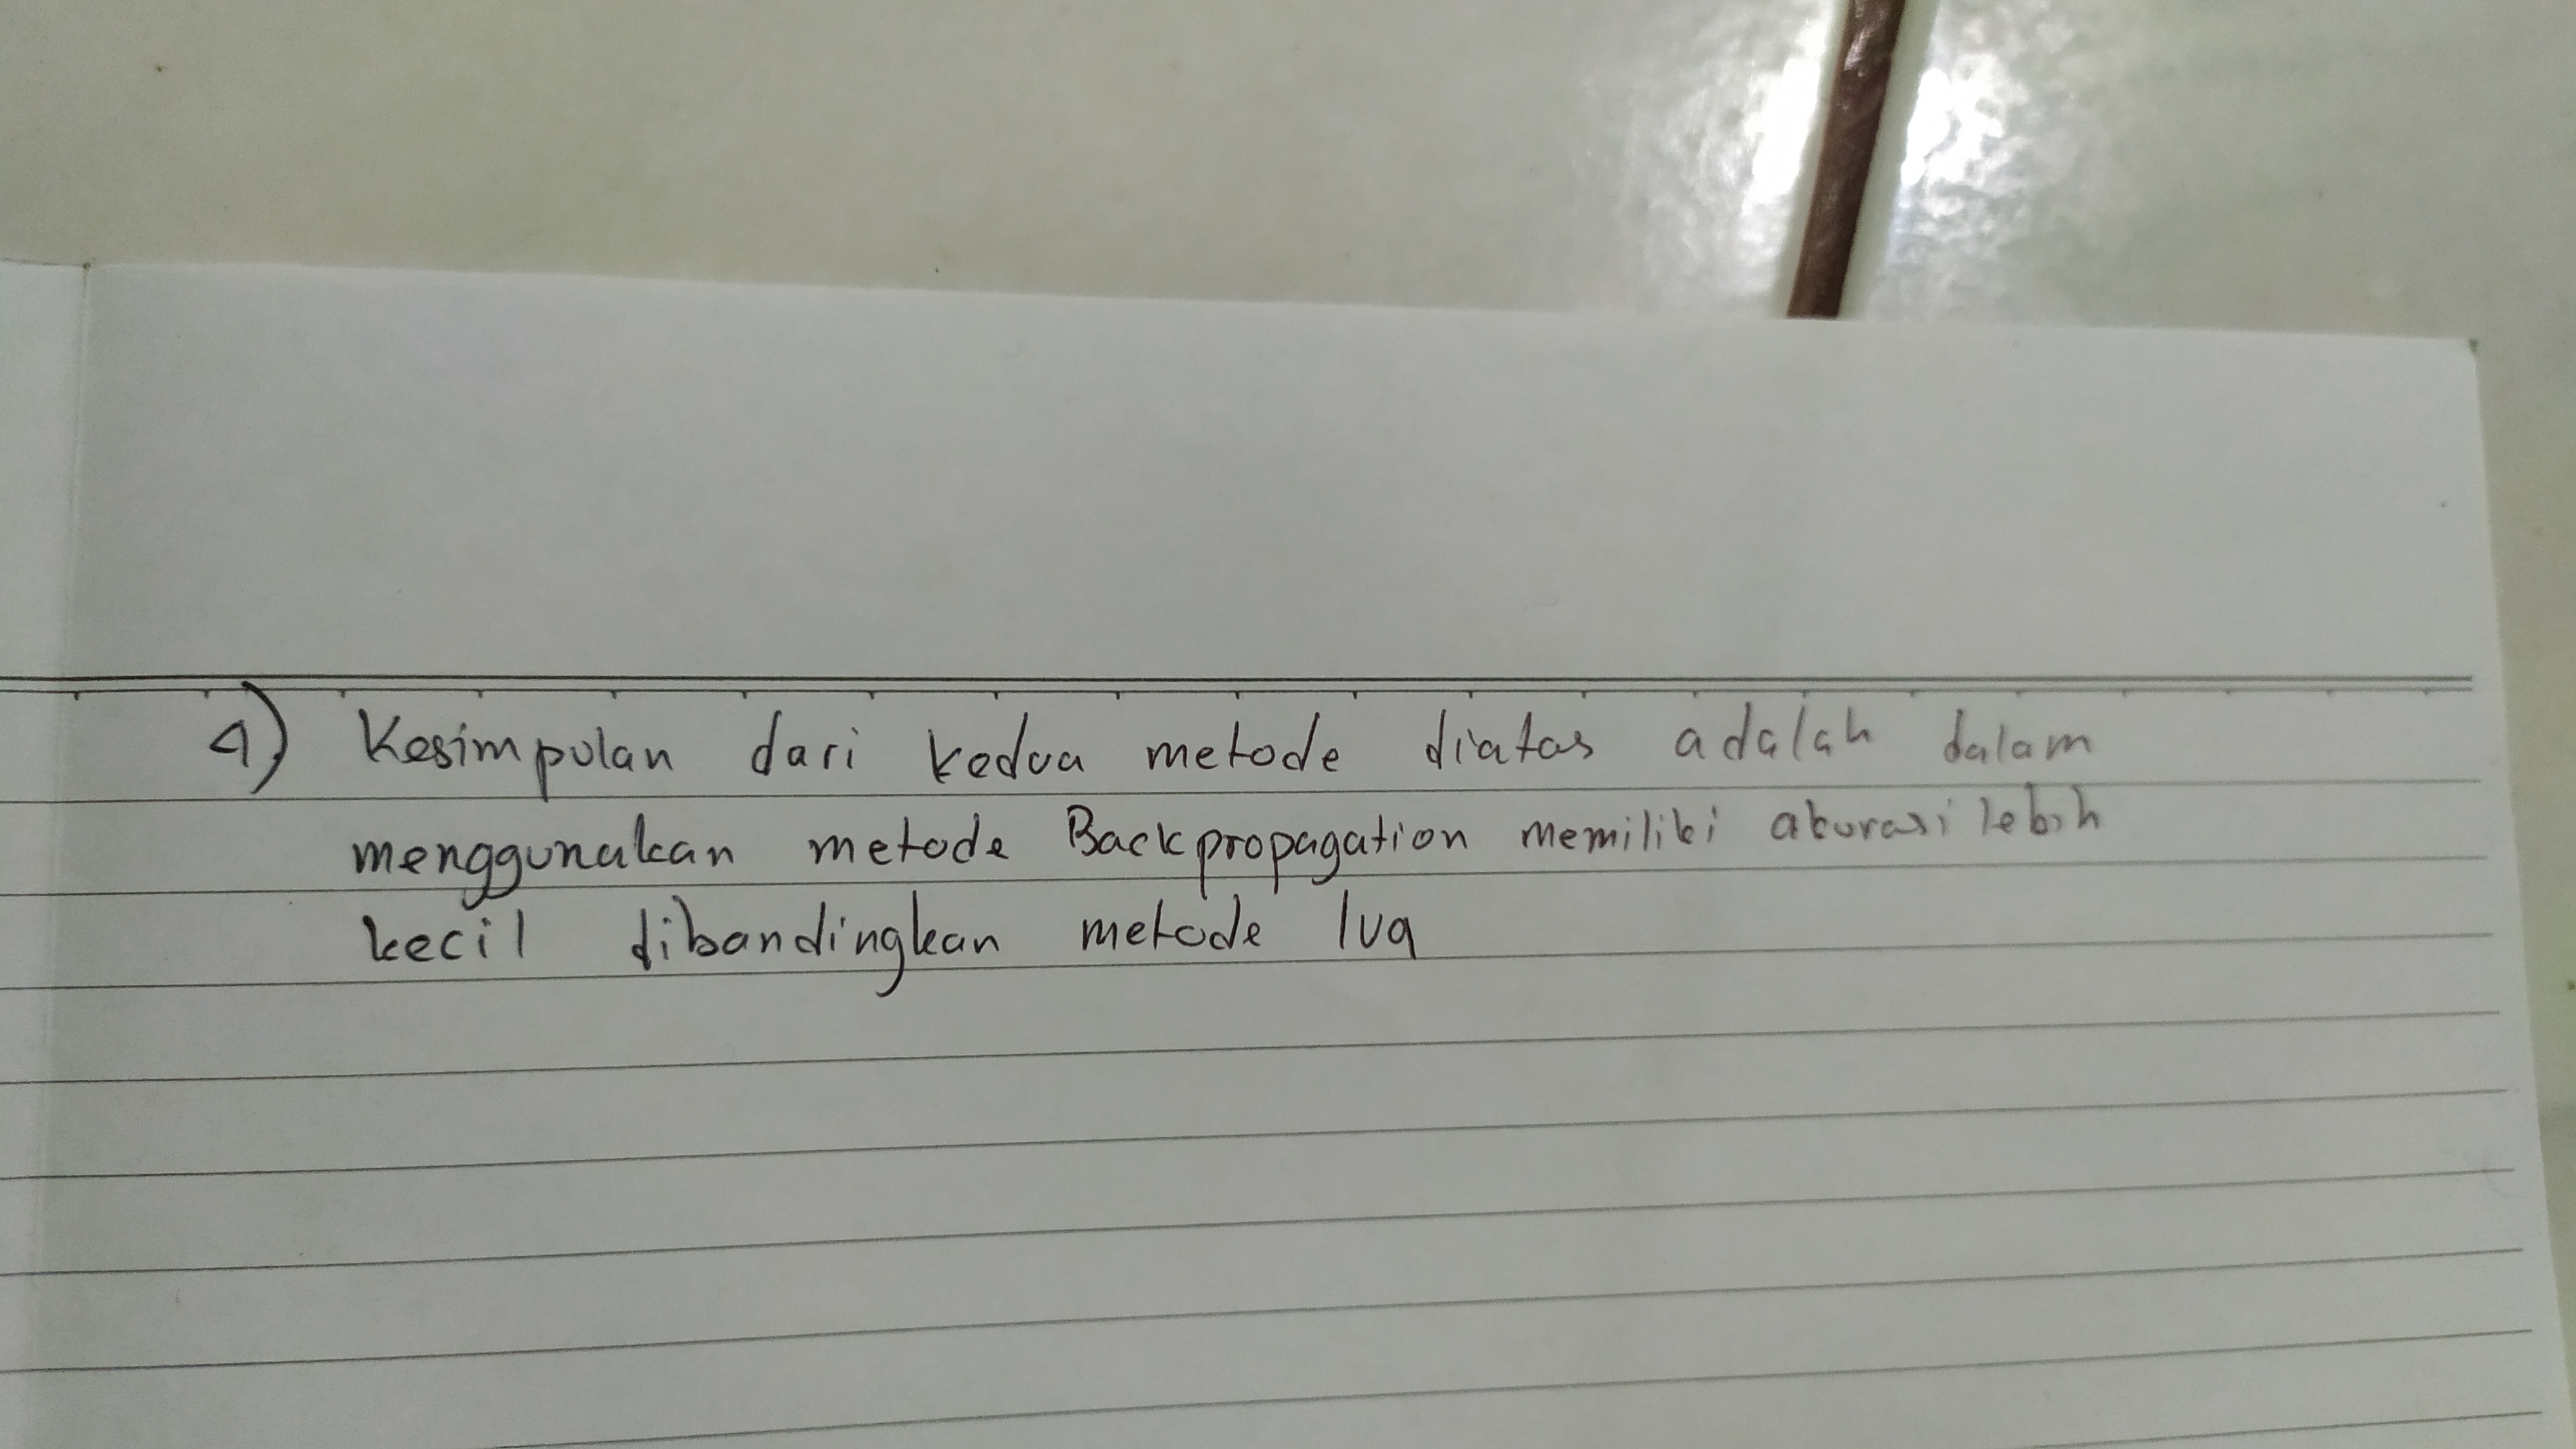 4) Kesimpulan dari kedua metode diatas adalah dalam
menggunakan metode Backpropagation memiliki akurasi lebih
kecil dibandingkan metode lvq